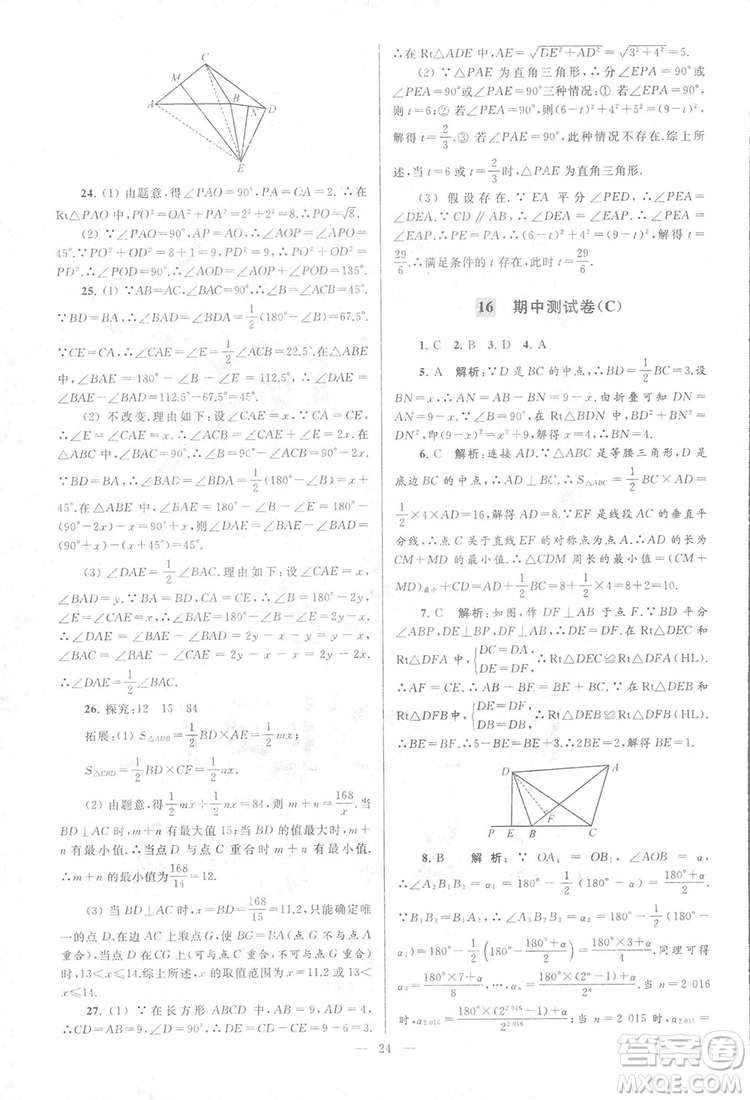 C
M
A
B
N
D
E
24. (1) 由题意,得∠PAO=90°,PA=OA=2.∴在
Rt△PAO中,PO²=OA²+PA²=2²+2²=8.∴PO=√8.
(2) ∵∠PAO=90°,AP=AO,∴∠AOP=
45°.∵PO²+OD²=8+1=9,PD²=3²=9,∴PO²+OD²=
PD².∴∠POD=90°.∴∠AOD=∠AOP+∠POD=135°.
25. (1) ∵AB=AC,∠BAC=90°,∴∠B=∠ACB=45°.
∵BD=BA,∴∠BAD=∠BDA=1/2(180°-∠B)=67.5°.
∵CE=CA,∴∠CAE=∠E=1/2∠ACB=22.5°.∴在△ABE
中,∠BAE=180°-∠B-∠E=112.5°.∴∠DAE=
∠BAE-∠BAD=112.5°-67.5°=45°.
(2) 不改变.理由如下:设∠CAE=x,∵CA=CE,
∴∠E=∠CAE=x.∴∠ACB=∠CAE+∠E=2x.在
△ABC中,∠BAC=90°,∴∠B=90°-∠ACB=90°-2x.
∵BD=BA,∴∠BAD=∠BDA=1/2(180°-∠B)=x+
45°.在△ABE中,∠BAE=180°-∠B-∠E=180°-
(90°-2x)-x=90°+x,则∠DAE=∠BAE-∠BAD=
(90°+x)-(x+45°)=45°.
(3) ∠DAE=1/2∠BAC.理由如下:设∠CAE=x,
∠BAD=y.∵BA=BD,∴∠BDA=∠BAD=y.∴∠B=
180°-∠BAD-∠BDA=180°-2y.∵CA=CE,∴∠E=
∠CAE=x.∴∠BAE=180°-∠B-∠E=2y-x.
∴∠DAE=∠BAE-∠BAD=2y-x-y=y-x,
∠BAC=∠BAE-∠CAE=2y-x-x=2y-2x.
∴∠DAE=1/2∠BAC.
26. 探究:12 15 84
拓展:(1) S△ADB=1/2BD×AE=1/2mx;
S△CBD=1/2BD×CF=1/2nx.
(2) 由题意,得1/2mx+1/2nx=84,则m+n=168/x.当
BD⊥AC时,m+n有最大值15;当BD的值最大时,
m+n有最小值.∴当点D与点C重合时m+n有最小值.
∴m+n的最小值为168/14=12.
(3) 当BD⊥AC时,x=BD=168/15=11.2,只能确定唯
一的点D.在AC上取点G,使BG=BA(点G不与点A
重合),当点D在CG上(可与点C重合,但不与点G重合)
时,13<x≤14.综上所述,x的取值范围为x=11.2或13<
x≤14.
27. (1) ∵在长方形ABCD中,∠D=90°,CD=AB=9,
∴在Rt△ADE中,DE=CD-CE=9-6=3.
∴在Rt△ADE中,AE=√(DE²+AD²)=√(3²+4²)=5.
(2) ∵△PAE为直角三角形,∴分∠EPA=90°、
∠PEA=90°、∠PAE=90°三种情况:① 若∠EPA=90°,
则t=6;② 若∠PEA=90°,则(6-t)²+4²+5²=(9-t)²,
解得t=2/3;③ 若∠PAE=90°,此种情况不存在.综上所
述,当t=6或t=2/3时,△PAE为直角三角形.
(3) 假设存在.∵EA平分∠PED,∴∠PEA=
∠DEA.∵CD∥AB,∴∠DEA=∠EAP.∴∠PEA=
∠EAP.∴PE=PA.∴(6-t)²+4²=(9-t)²,解得t=
29/6.∴满足条件的t存在,此时t=29/6.
16 期中测试卷(C)
1. C 2. B 3. D 4. A
5. A 解析:∵D是BC的中点,∴BD=1/2BC=3.
设BN=x,则AN=AB-BN=9-x.由折叠可知DN=
AN=9-x.在Rt△BDN中,BN²+BD²=DN²,
∴x²+3²=(9-x)²,解得x=4.∴BN=4.
6. C 解析:连接AD.∵△ABC是等腰三角形,
点D是底边BC的中点,∴AD⊥BC.∴S△ABC=1/2BC×AD=
1/2×4×AD=16,解得AD=8.∵EF是线段AC的垂直平
分线,∴点C关于直线EF的对称点为点A.∴AD的长为
CM+MD的最小值.∴△CDM周长的最小值=(CM+
MD)最小+CD=AD+1/2BC=8+1/2×4=10.
7. C 解析:如图,作DF⊥AB于点F.∵BD平分
∠ABP,DE⊥BP,∴DF=DE.在Rt△DEC和
Rt△DFA中,{DC=DA, DE=DF,∴Rt△DEC≌Rt△DFA(HL).
∴AF=CE.∴AF=CE=3+BE.在Rt△DEB和
Rt△DFB中,{DE=DF, DB=DB,∴Rt△DEB≌Rt△DFB(HL).
∴BE=BF.∴5-BE=BF+3.∴BE=1.
D
A
F
P
E
B
C
8. B 解析:∵OA₁=OB₁,∠AOB=α,
∴∠A₂B₁B₂=180°-α₁=1/2(180°+α).∵B₁B₂=B₁A₂,
∴∠A₂B₂B₁=1/2(180°-∠A₂B₁B₂)=1/2[180°-
1/2(180°+α)].∴α₂=180°-∠A₂B₂B₁=180°-1/2(180°-
α₁)=180°-1/2(180°-(180°-α)/2)=(180°×3+α)/4.同理可得
α₃=(180°×7+α)/8,…,αₙ=(180°×(2ⁿ-1)+α)/2ⁿ.当n=2 016
时,α₂ ₀₁₆=(180°×(2² ⁰¹⁶-1)+α)/2² ⁰¹⁶.
— 24 —
答案圈
MXQE.COM